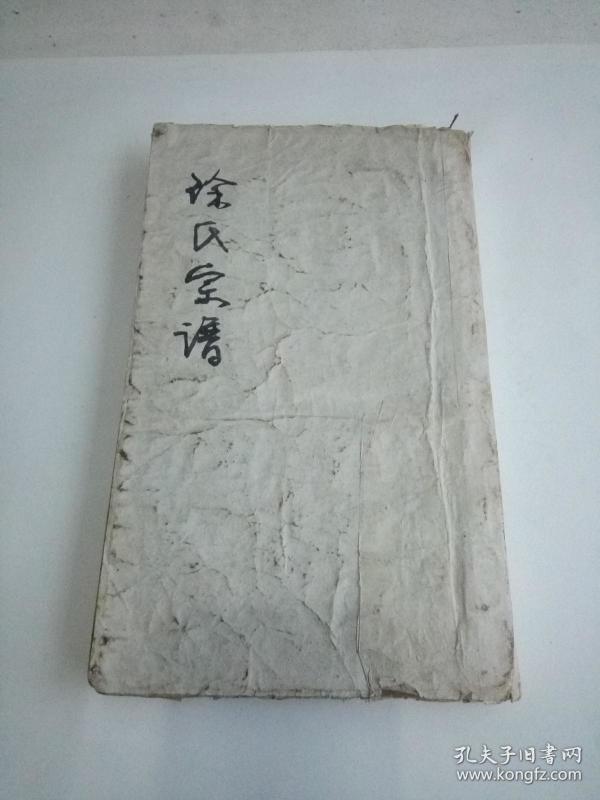 徐氏宗谱
孔夫子旧书网
www.kongfz.com